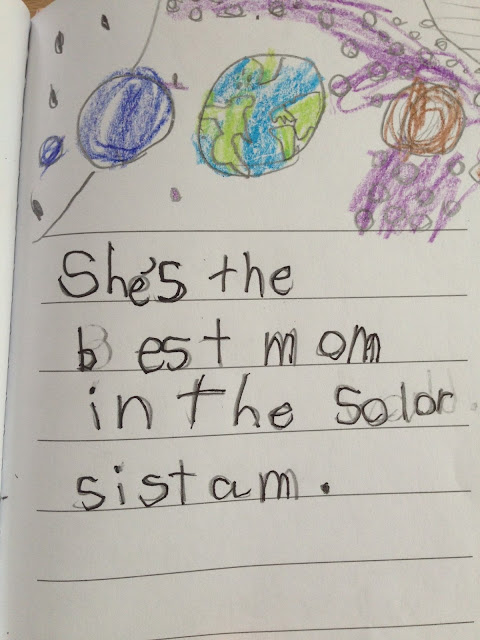 She's the
best mom
in the solor
sistam.